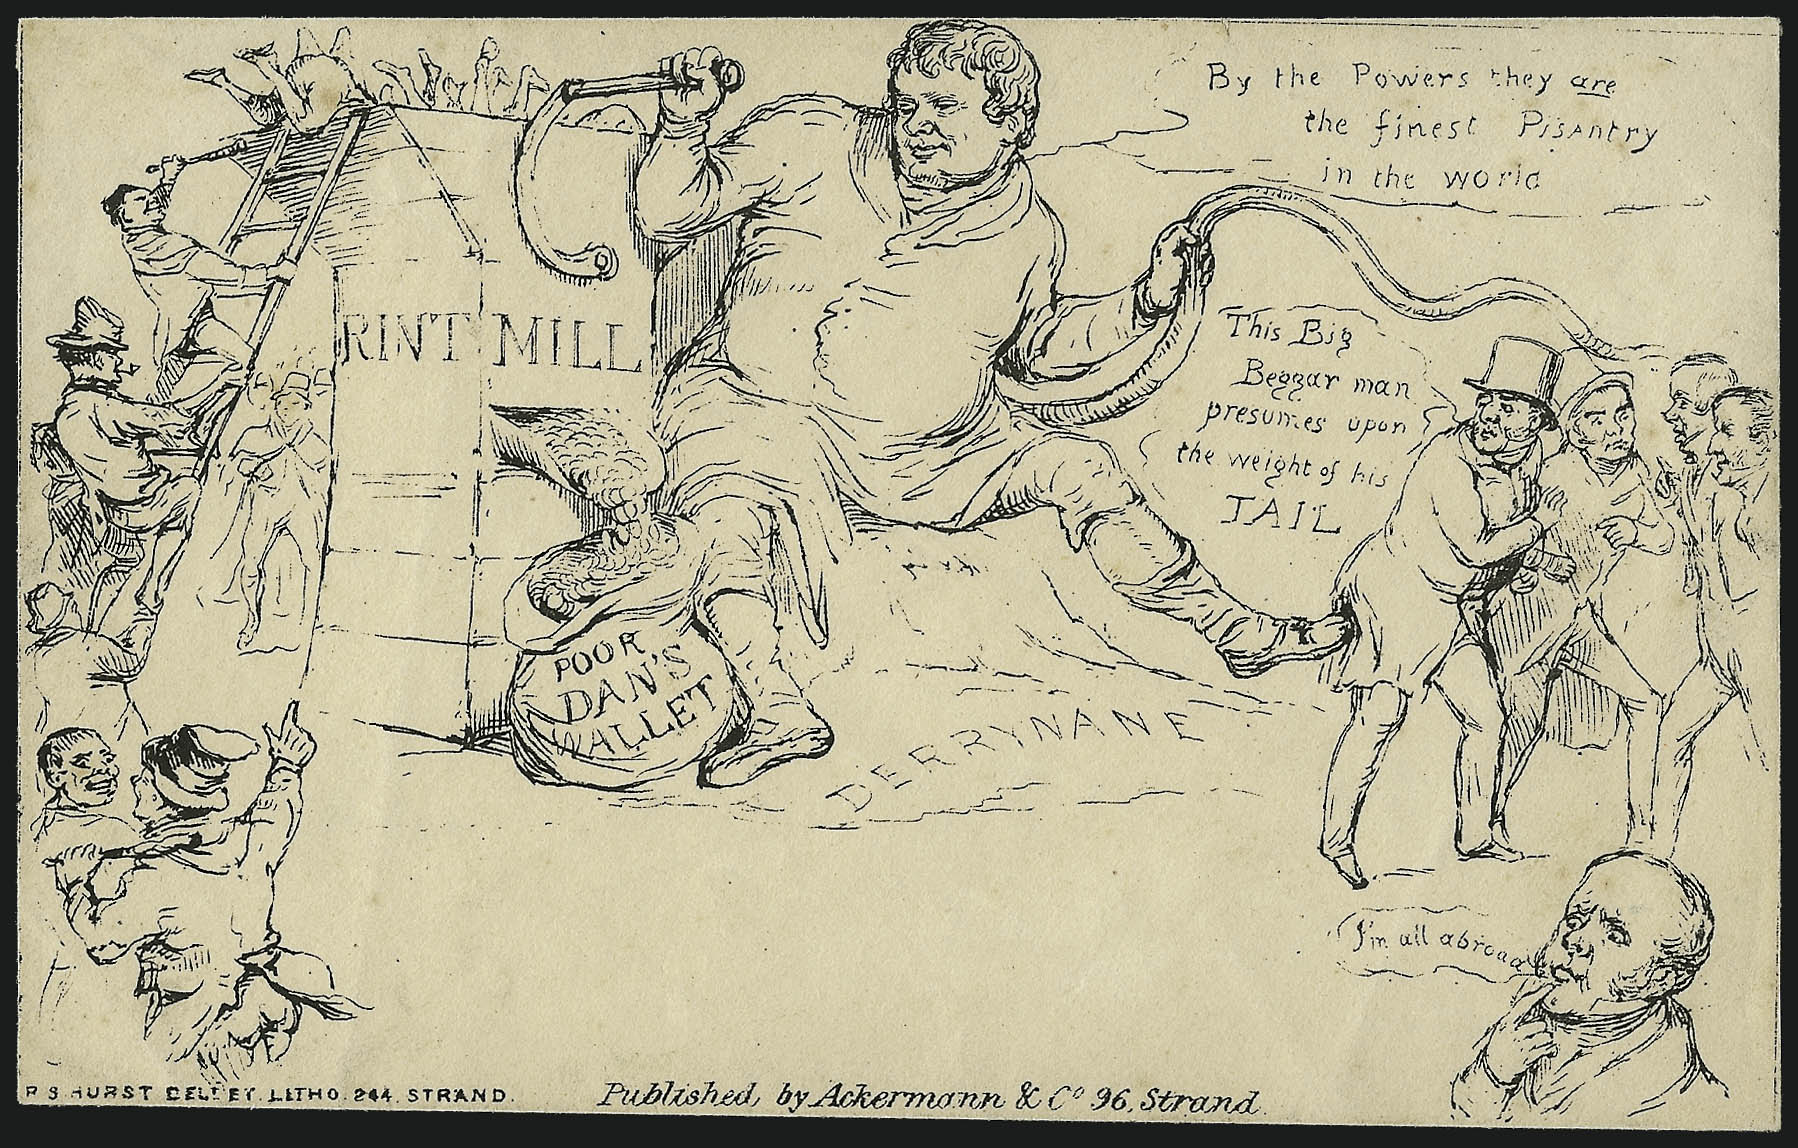 By the Powers they are
the finest Pisantry
in the world
RINT MILL
This Big
Beggar man
presumes upon
the weight of his
TAIL
POOR
DAN'S
WALLET
DERRYNANE
I'm all abroad
R S HURST DEL ET LITHO. 244. STRAND.
Published, by Ackermann & Co 96, Strand.